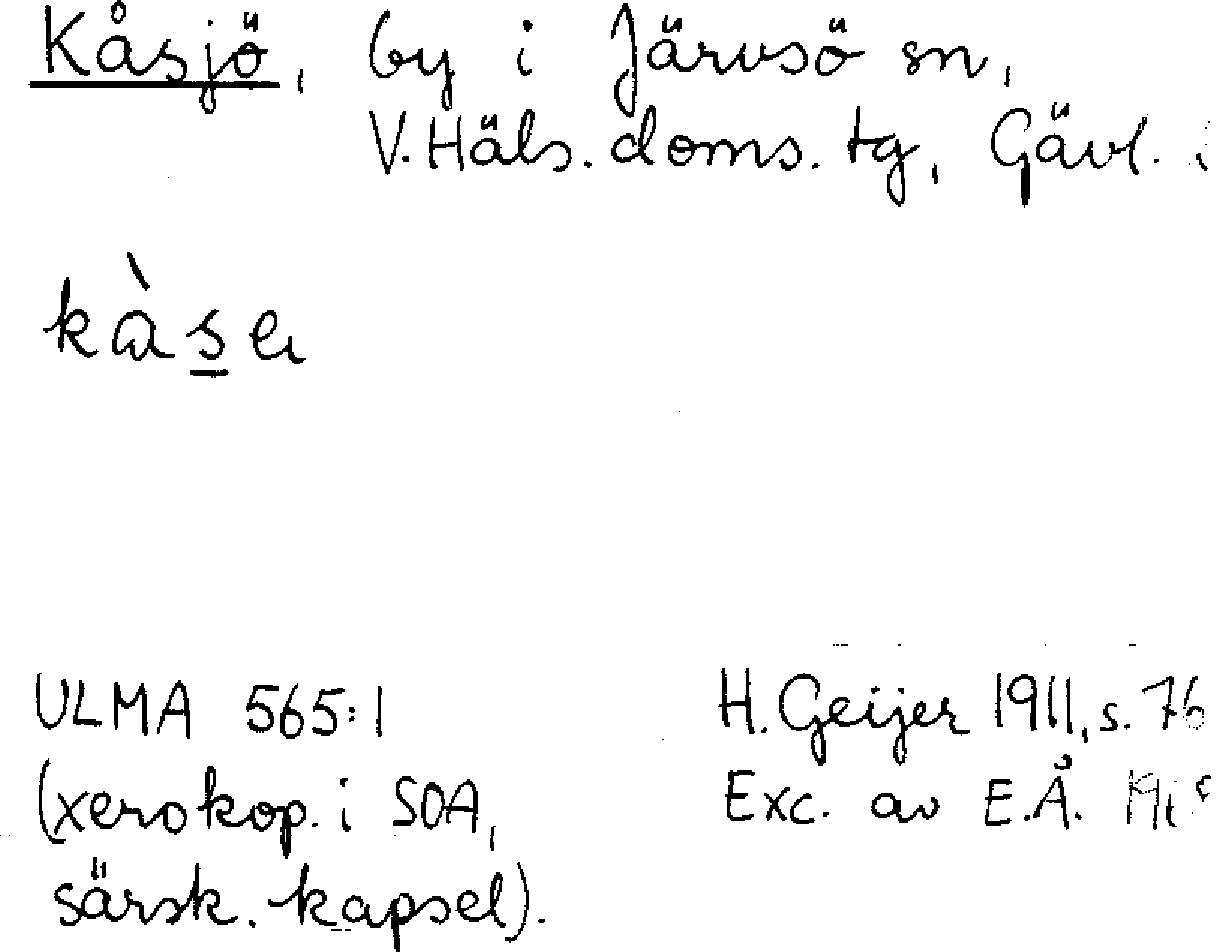 Kåsjö, by i Järvsö sn,
V.Häls.doms.tg, Gävl.
ULMA 565:1
(xerokop. i SOA,
särsk. kapsel).
H.Geijer 1911, s. 76
Exc. av E.Å.